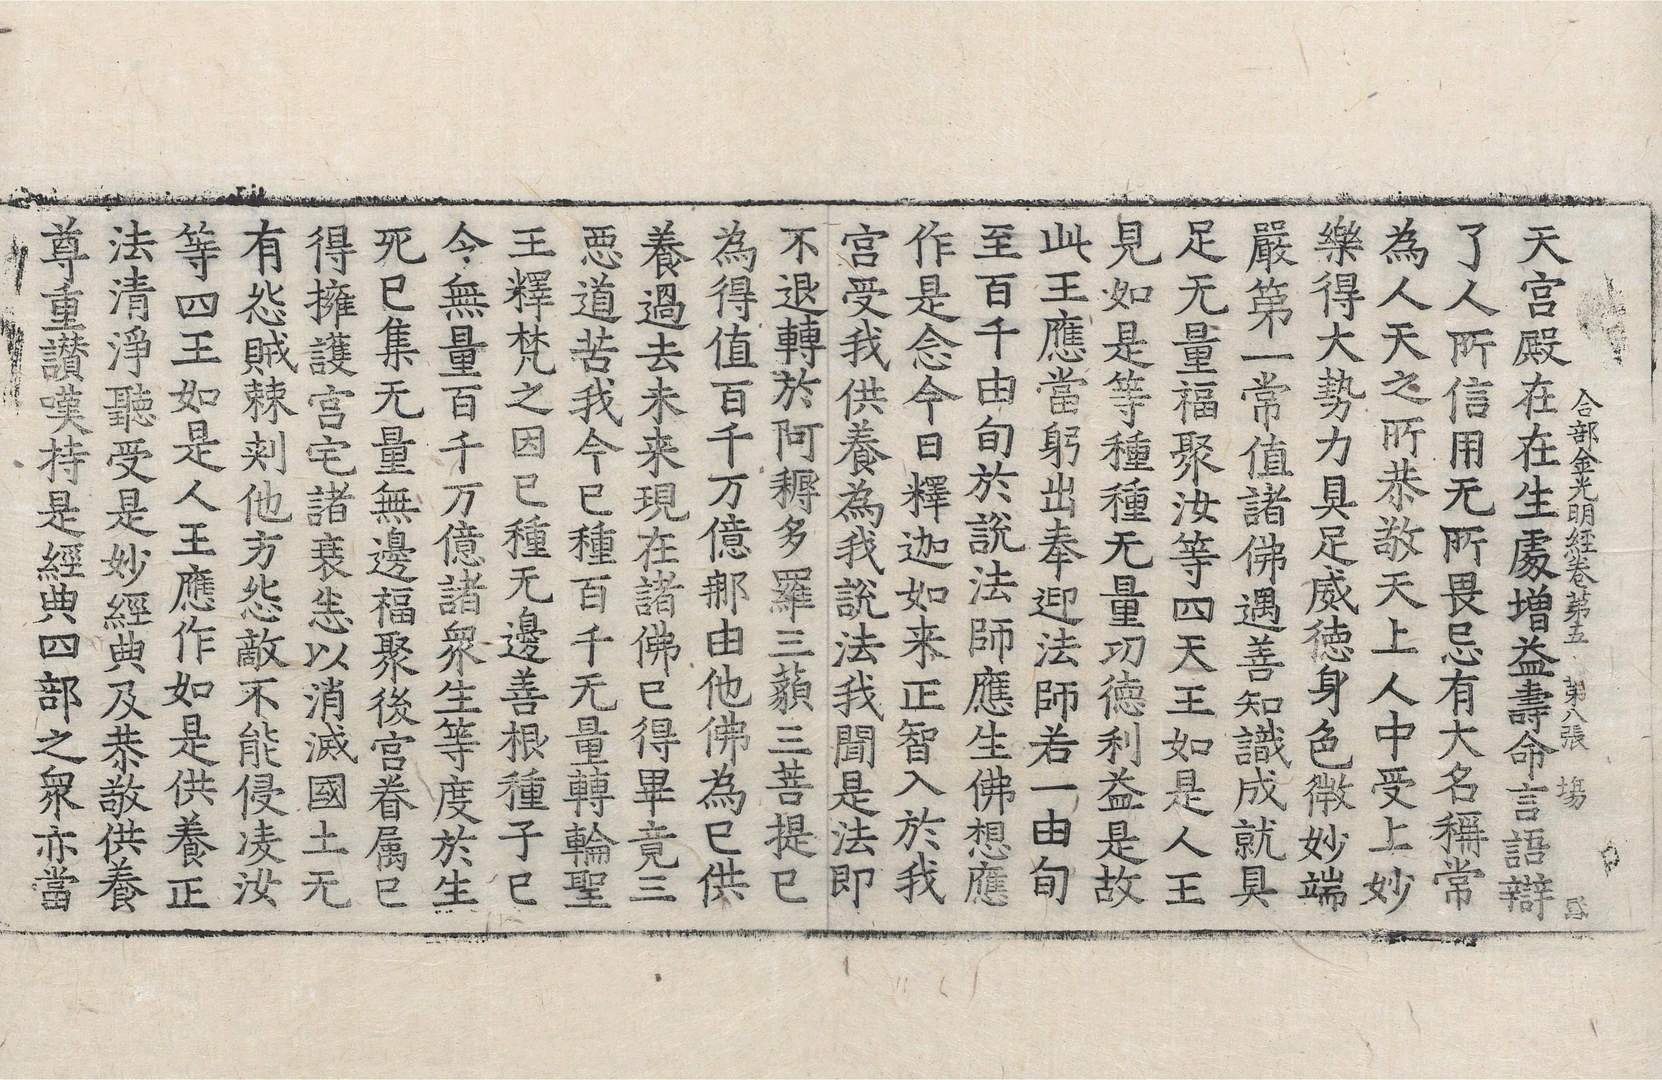 合部金光明經卷第五 第八張 塲
天宫殿在在生處增益壽命言語辯
了人所信用无所畏忌有大名稱常
為人天之所恭敬天上人中受上妙
樂得大勢力具足威德身色微妙端
嚴第一常值諸佛遇善知識成就具
足无量福聚汝等四天王如是人王
見如是等種種无量功德利益是故
此王應當躬出奉迎法師若一由旬
至百千由旬於說法師應生佛想應
作是念今日釋迦如来正智入於我
宫受我供養為我說法我聞是法即
不退轉於阿耨多羅三藐三菩提已
為得值百千万億那由他佛為已供
養過去未来現在諸佛已得畢竟三
惡道苦我今已種百千无量轉輪聖
王釋梵之因已種无邊善根種子已
今無量百千万億諸衆生等度於生
死已集无量無邊福聚後宫眷属已
得擁護宫宅諸衰恙以消滅國土无
有怨賊棘刾他方怨敵不能侵凌汝
等四王如是人王應作如是供養正
法清淨聽受是妙經典及恭敬供養
尊重讃嘆持是經典四部之衆亦當